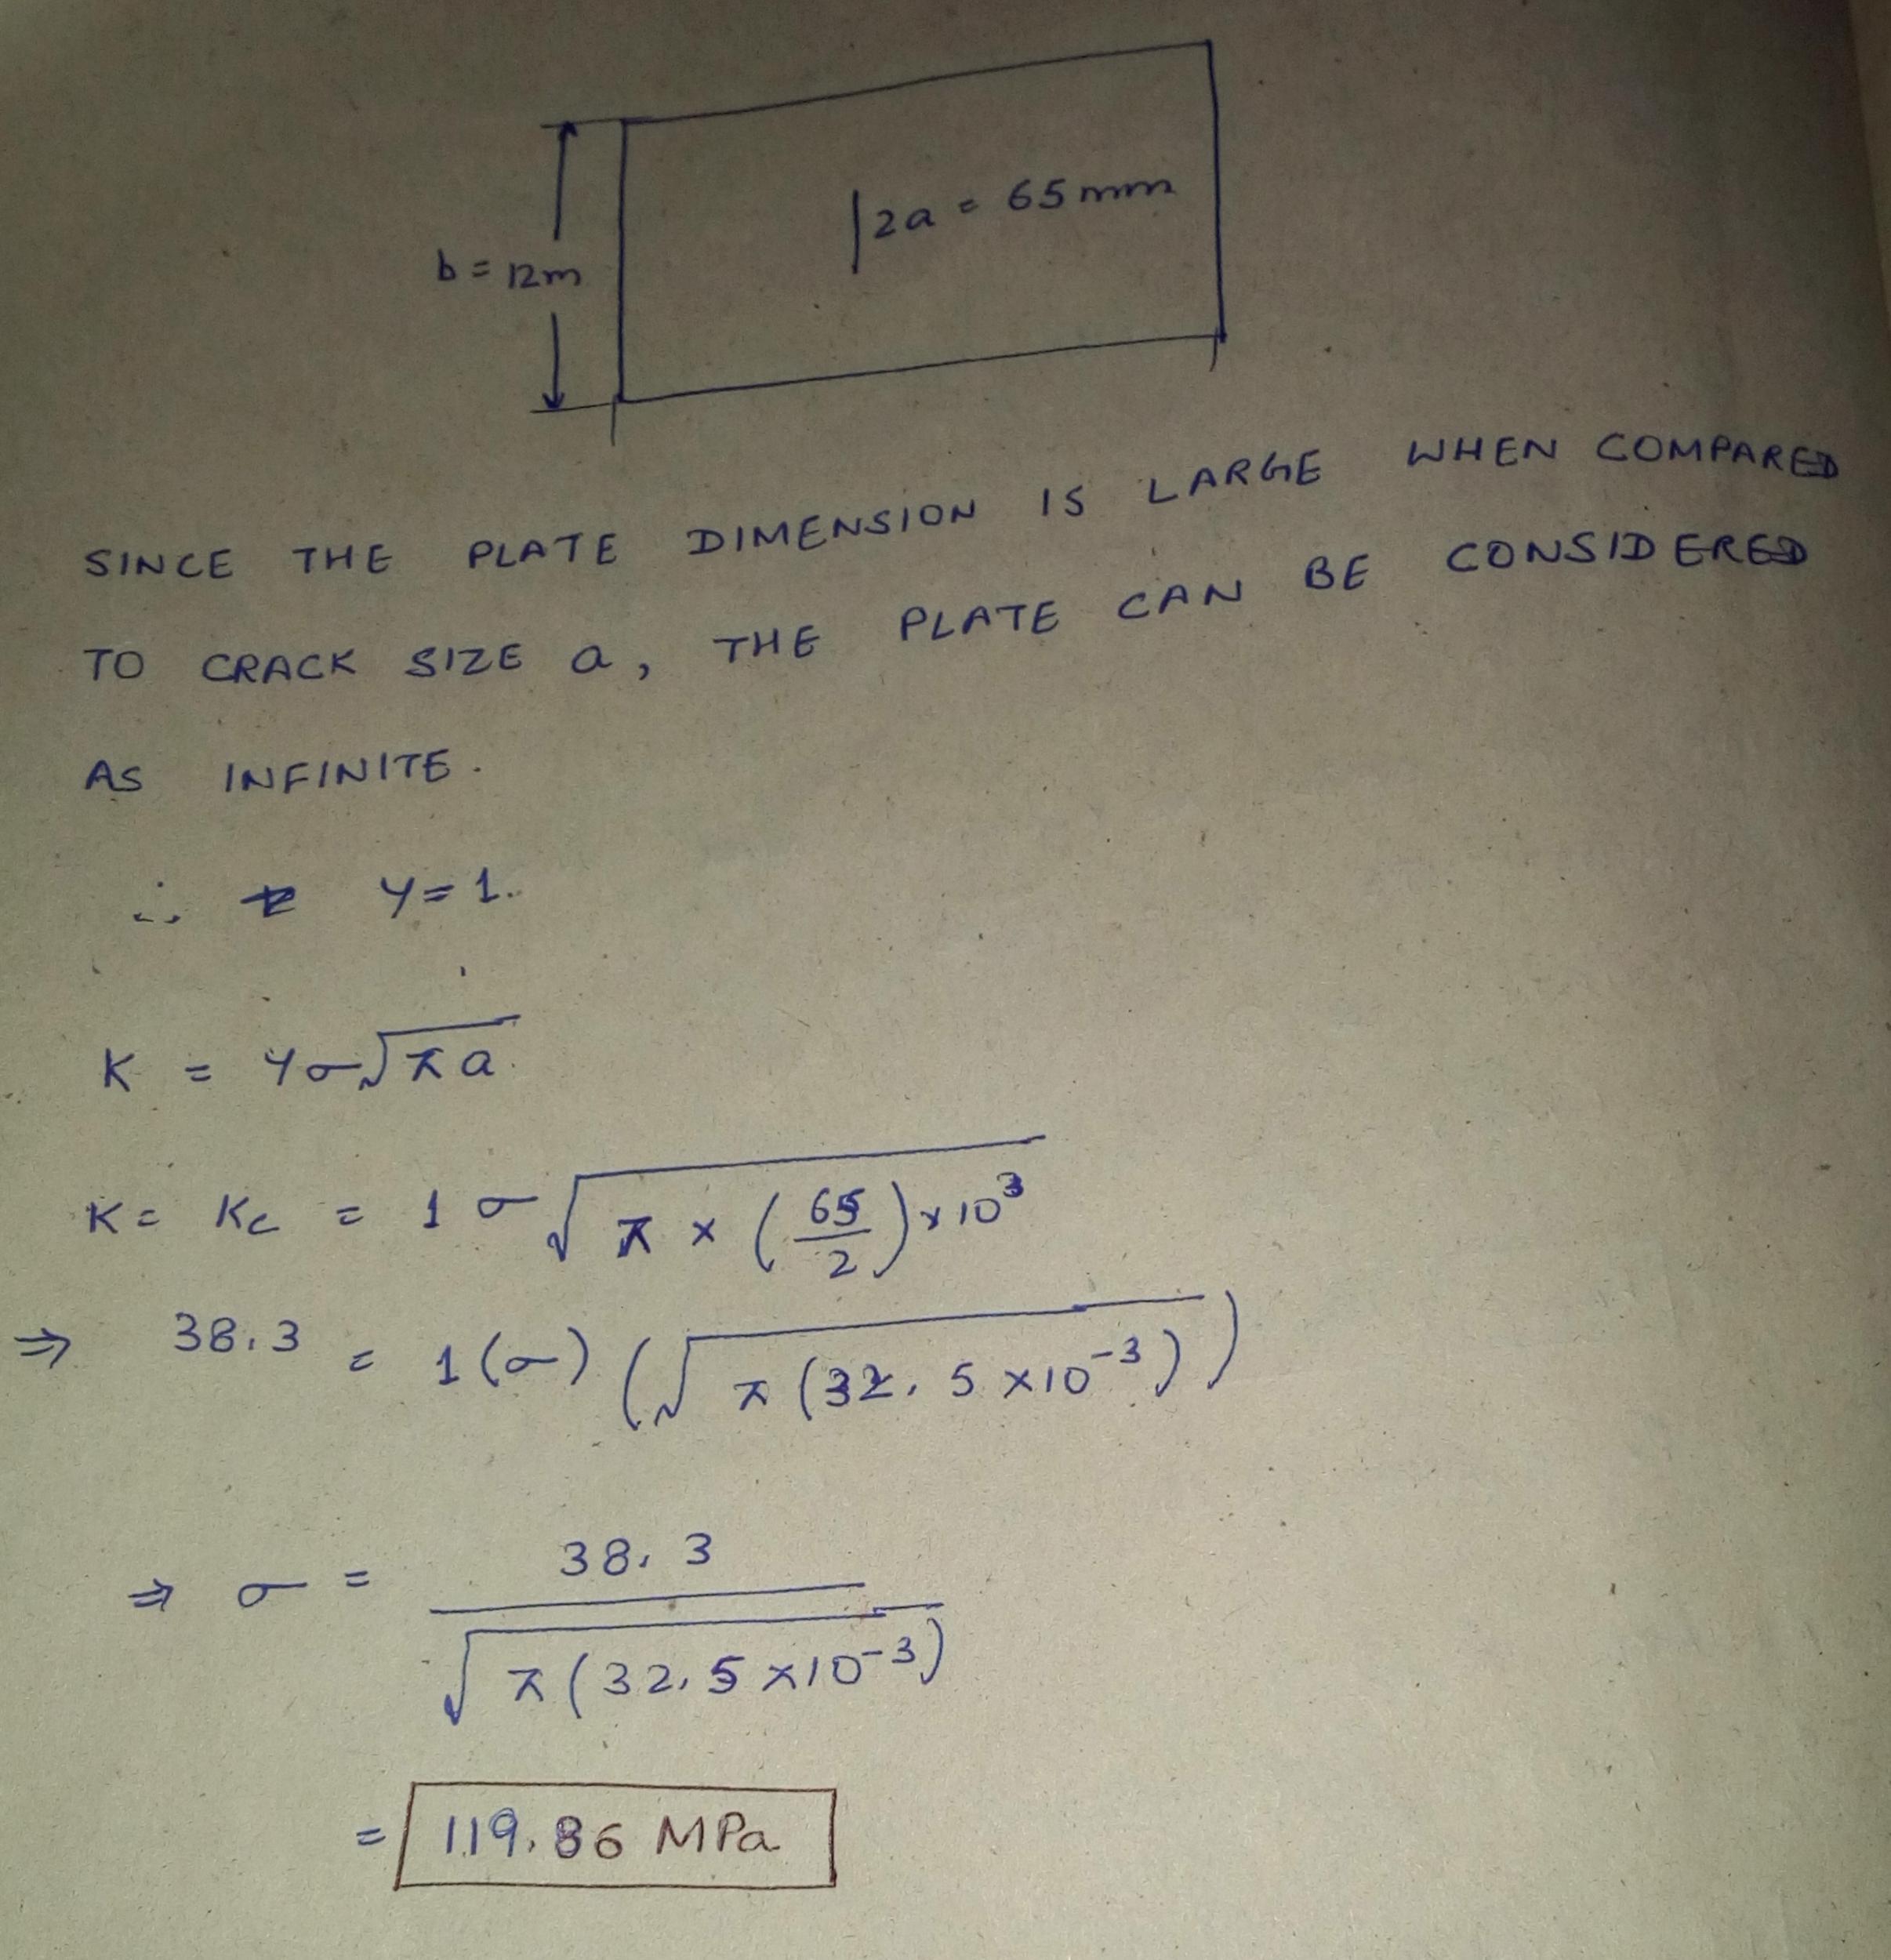 b = 12m
2a = 65 mm
SINCE THE PLATE DIMENSION IS LARGE WHEN COMPARED
TO CRACK SIZE a, THE PLATE CAN BE CONSIDERED
AS INFINITE.
∴ Y = 1.
K = Yσ√πa
K = Kc = 1 σ √π × (65/2) × 10³
⇒ 38.3 = 1 (σ) (√π (32.5 × 10⁻³))
⇒ σ = 38.3 / √π (32.5 × 10⁻³)
= 119.86 MPa